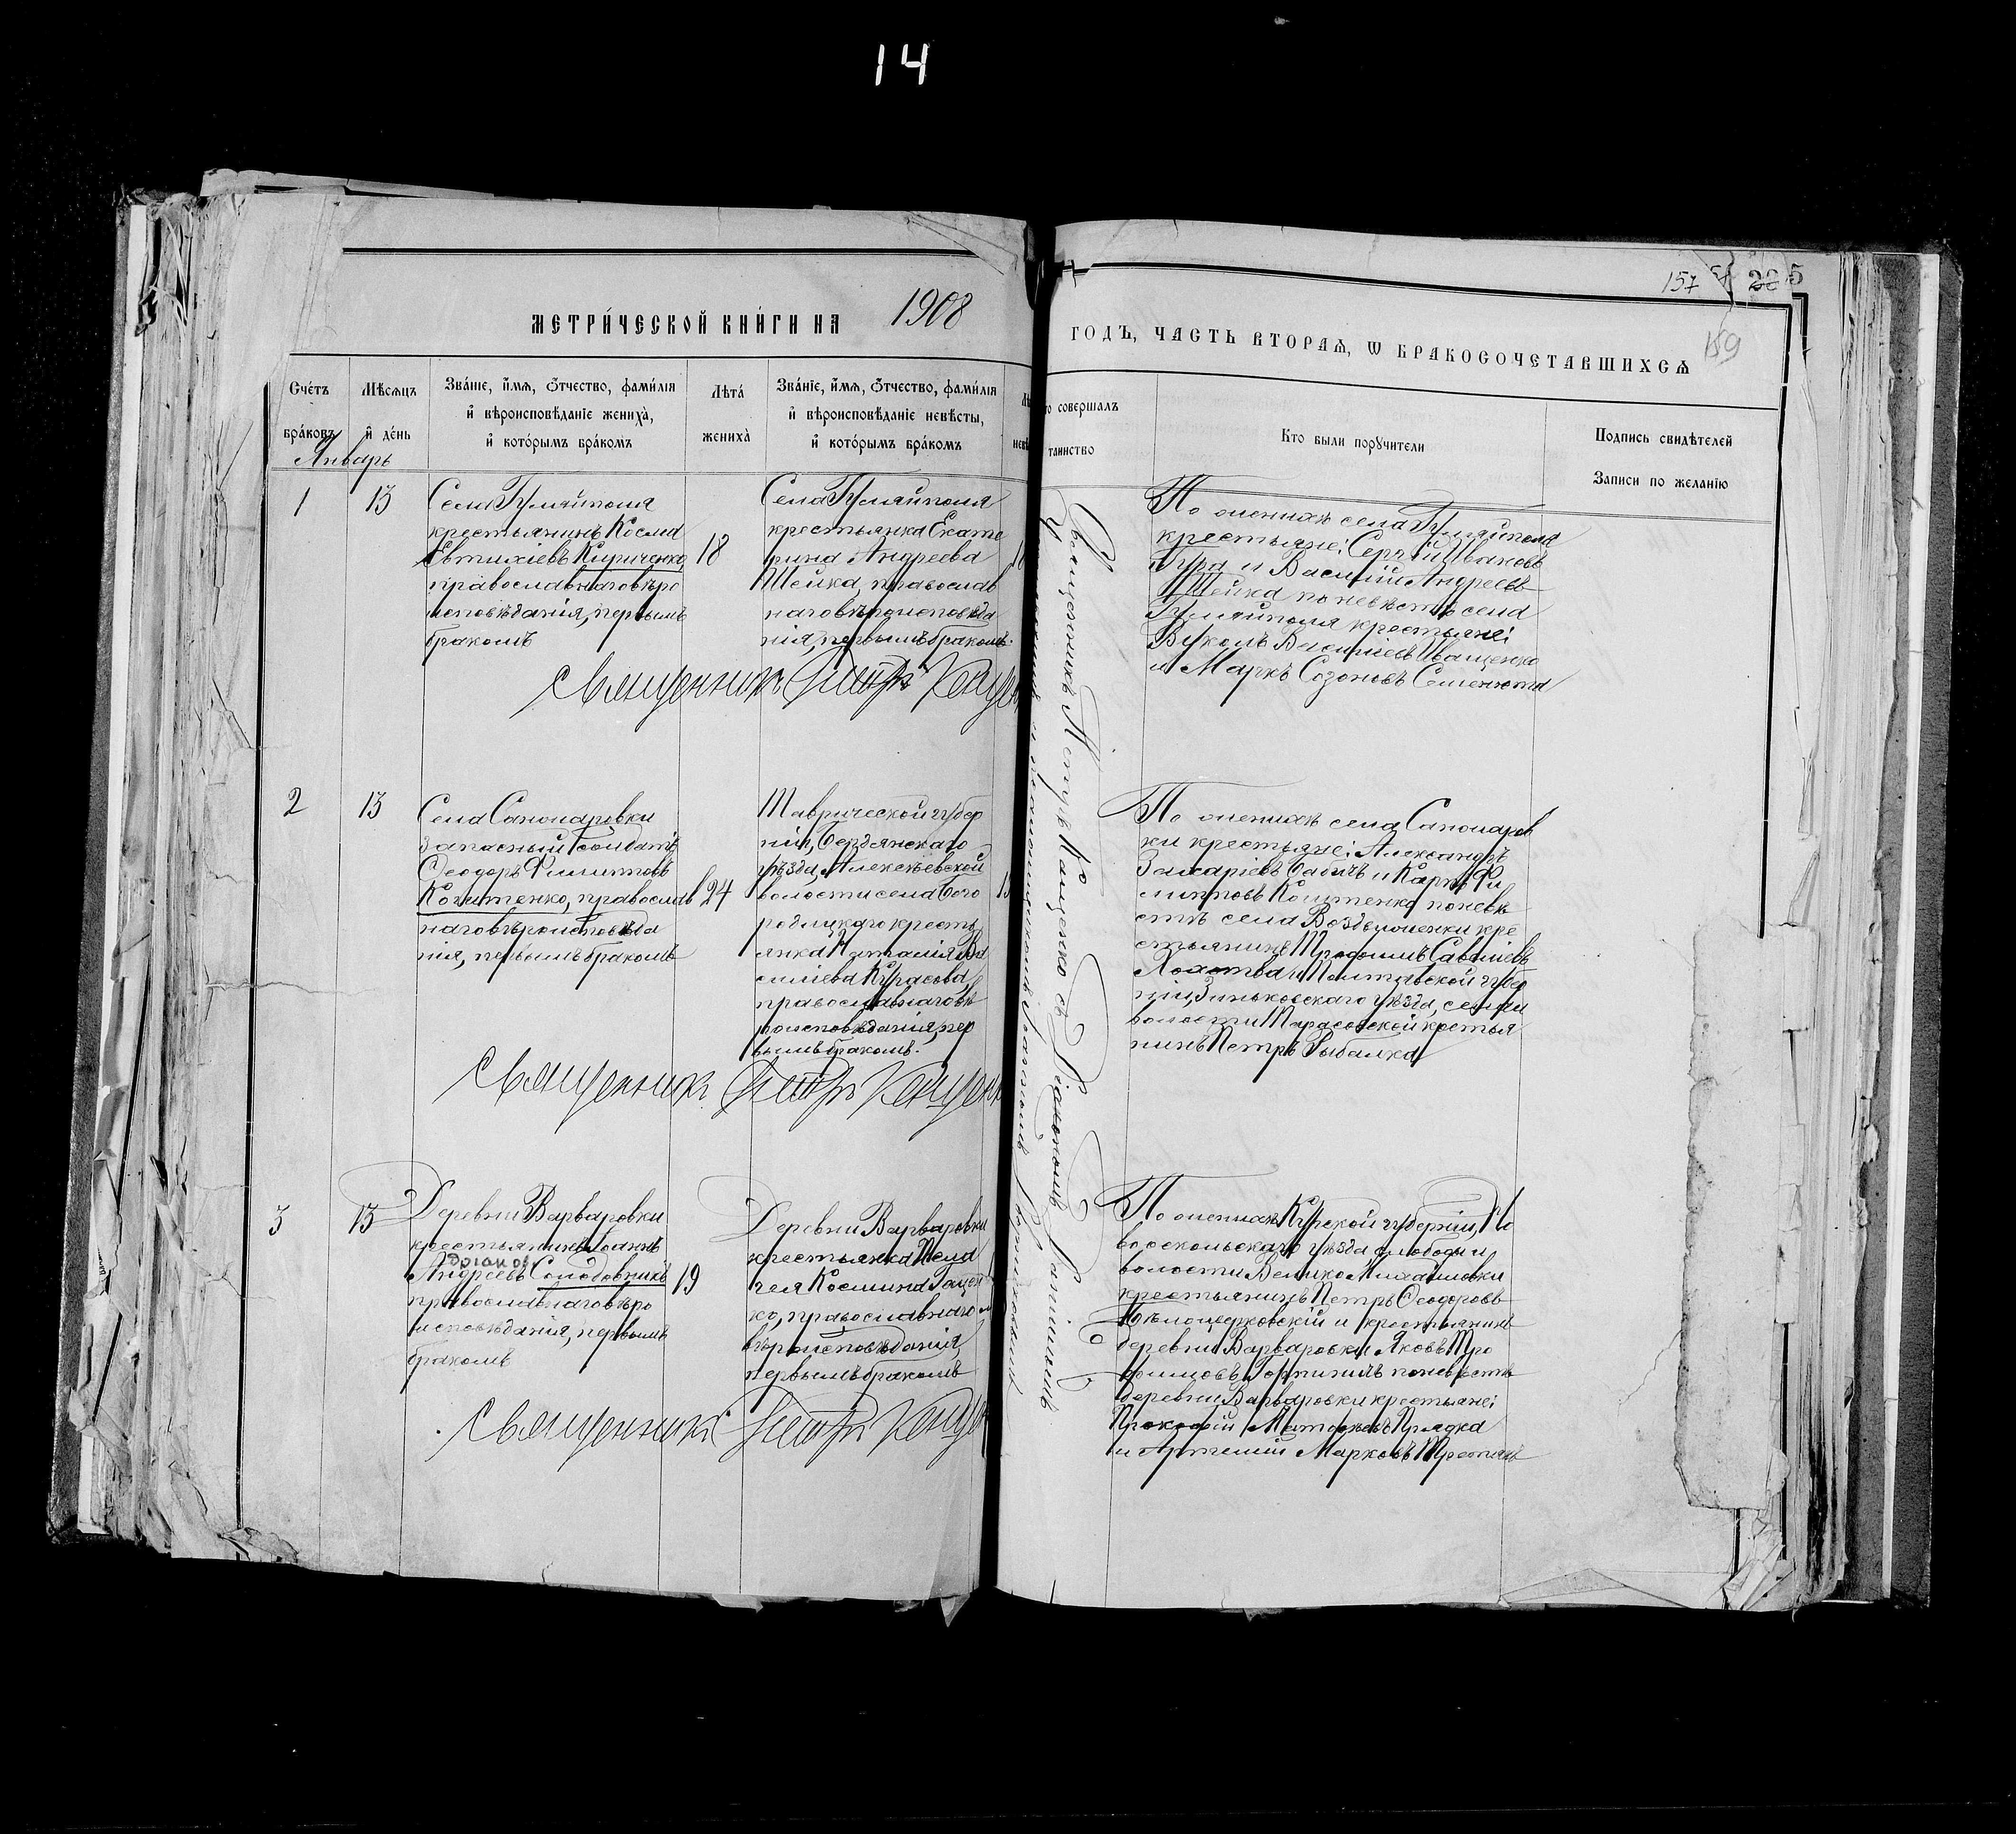 14
МЕТРИ́ЧЕСКОЙ КНИ́ГИ НА 1908
ГОДЪ, ЧАСТЬ ВТОРАѦ, Ѡ БРАКОСОЧЕТАВШИХСѦ
157
285
159
Сче́тъ бра́ковъ
Мѣ́сѧцъ и҆ де́нь
Зва́нїе, и҆́мѧ, ѻ҆́тчество, фами́лїѧ
и҆ вѣроисповѣ́данїе жениха̀,
и҆ кото́рымъ бра́комъ
Лѣта̀
жениха̀
Зва́нїе, и҆́мѧ, ѻ҆́тчество, фами́лїѧ
и҆ вѣроисповѣ́данїе невѣ́сты,
и҆ кото́рымъ бра́комъ
то совершалъ
таинство
Кто были порꙋчители
Подпись свидѣтелей
Записи по желанїю
Январь
1
13
Села Гуляйполя
крестьянинъ Косма
Евтихіевъ Кириченко
православнаго вѣро
исповѣданія, первымъ
бракомъ
18
Села Гуляйполя
крестьянка Екате
рина Андреева
Шейка, православ
наго вѣроисповѣда
нія, первымъ бракомъ.
Священникъ Петръ
По женихѣ села Гуляйполя
крестьяне: Сергій Ивановъ
и Василій Андреевъ
Шейка по невѣстѣ села
Гуляйполя крестьяне:
Вуколъ Василіевъ Иващенко
и Маркъ Созоновъ Семенюта
2
13
Села Санжаровки
запасный солдатъ
Ѳеодоръ Филипповъ
православ
наго вѣроисповѣда
нія, первымъ бракомъ
24
Таврической губер
ніи, Бердянскаго
уѣзда, Алексѣевской
волости села Бого
родицкаго кресть
янка Наталія Ва
силіева Курасова,
православнаго вѣ
роисповѣданія, пер
вымъ бракомъ.
Священникъ Петръ
По женихѣ села Санжаров
ки крестьяне: Александръ
Захаріевъ Бабичъ и Карпъ Фи
липповъ по невѣ
стѣ села Воздвиженки кре
стьянинъ Трофимъ Савеліевъ
и Полтавской губер
ніи, Зиньковскаго уѣзда,
волости Тарасовской крестья
нинъ Петръ Рыбалка
3
13
Деревни Варваровки
крестьянинъ Іоаннъ
Андреевъ Солодовникъ
православнаго вѣро
исповѣданія, первымъ
бракомъ
19
Деревни Варваровки
крестьянка Пела
гея Космина Гацен
ко, православнаго
вѣроисповѣданія,
первымъ бракомъ
Священникъ Петръ
По женихѣ Курской губерніи, Но
вооскольскаго уѣзда слободы и
волости Велико Михайловки
крестьянинъ Петръ Ѳеодоровъ
Бѣлоцерковскій и крестьянинъ
деревни Варваровки Яковъ Тро
фимовъ по невѣстѣ
деревни Варваровки крестьяне:
Прокофій Прядка
и Артемій Марковъ Третякъ
Священникъ Петръ съ Діакономъ